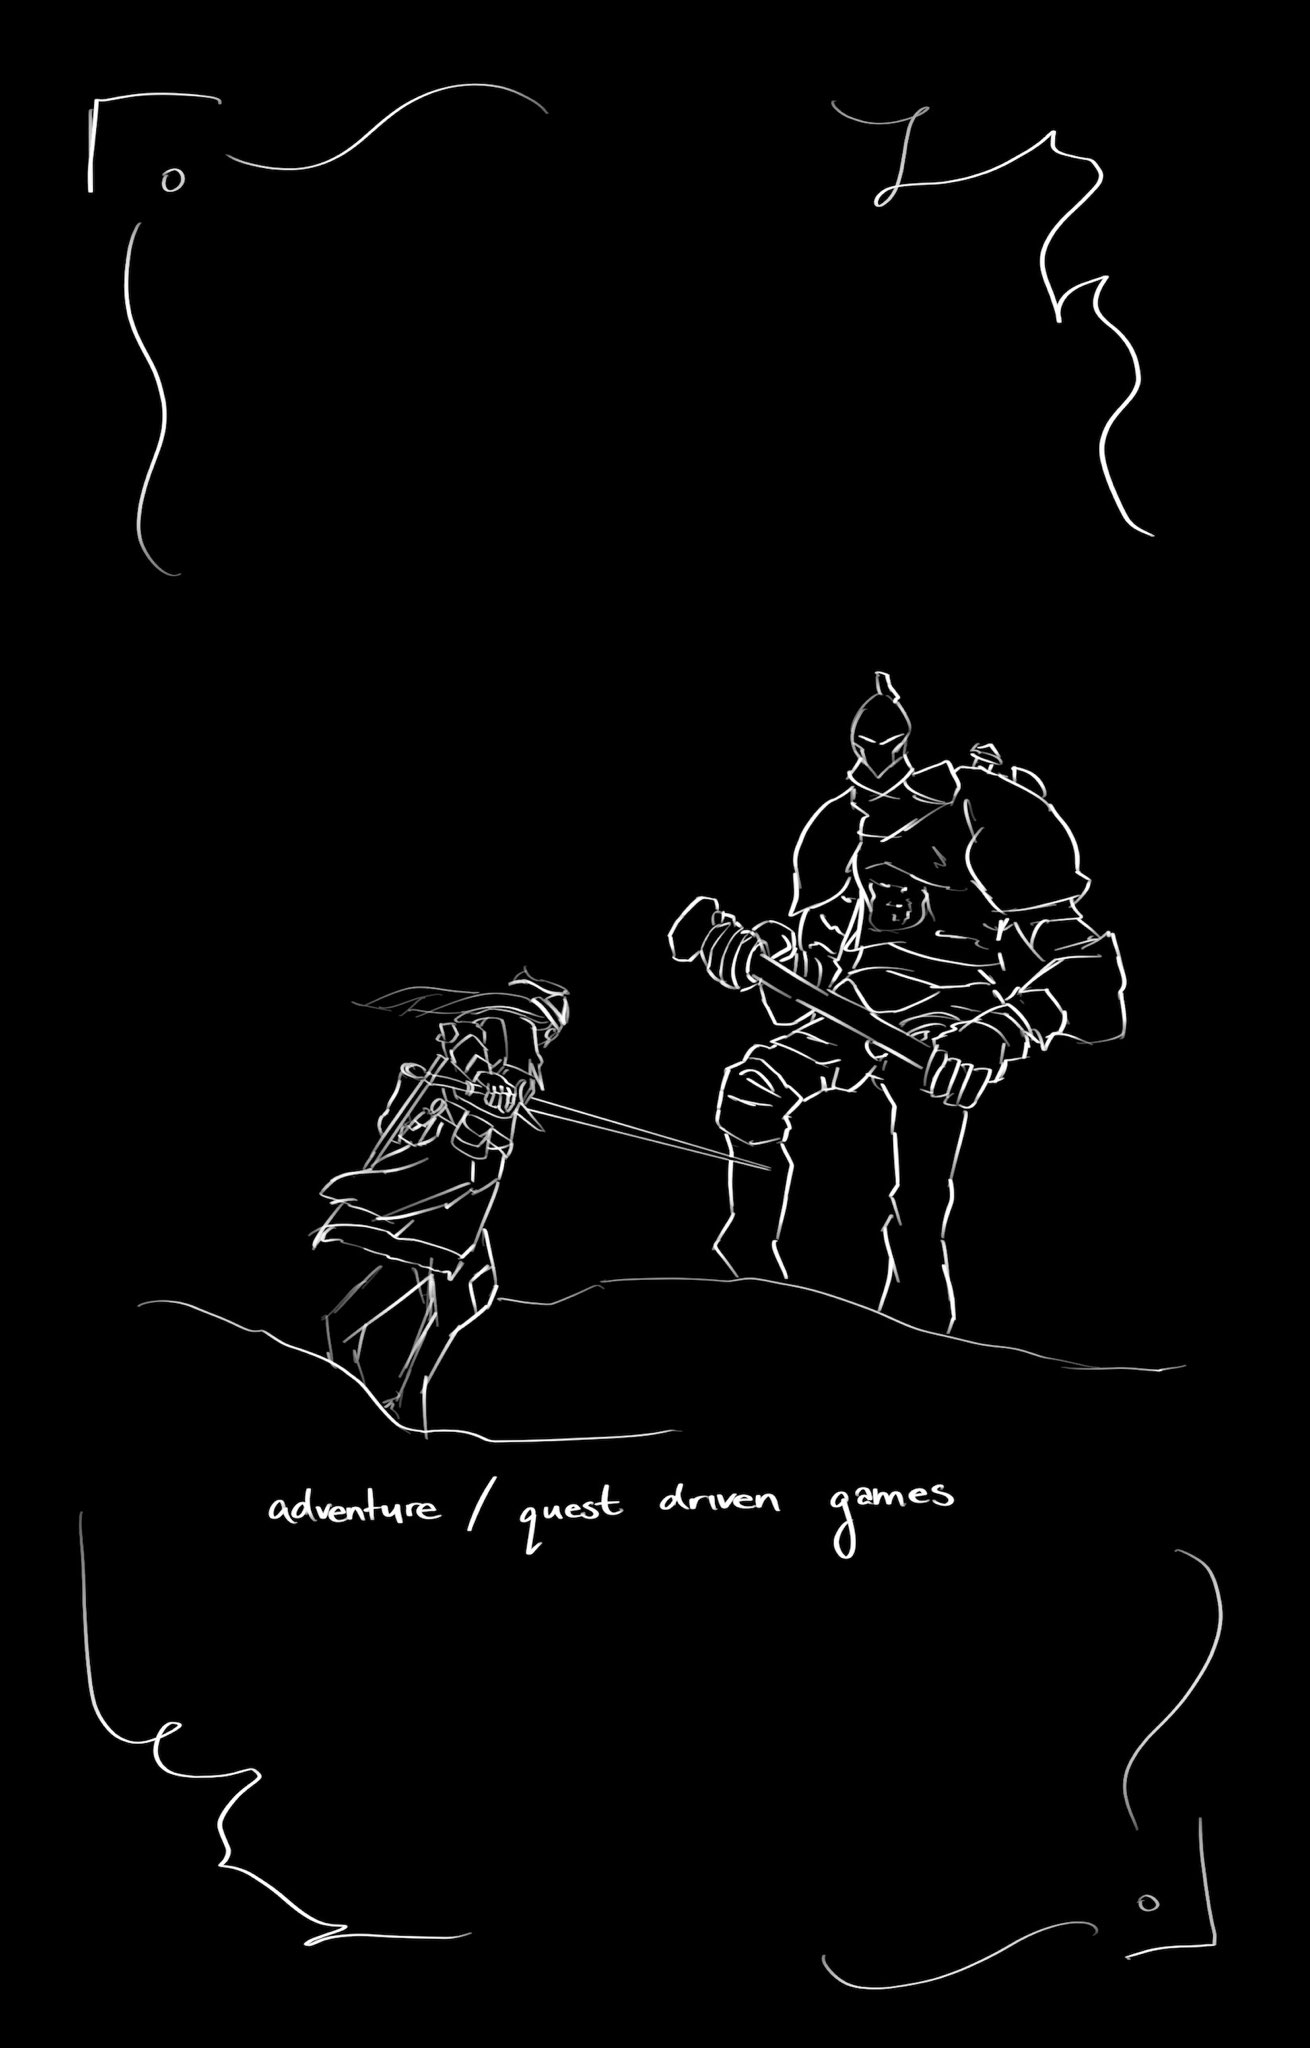 adventure / quest driven games